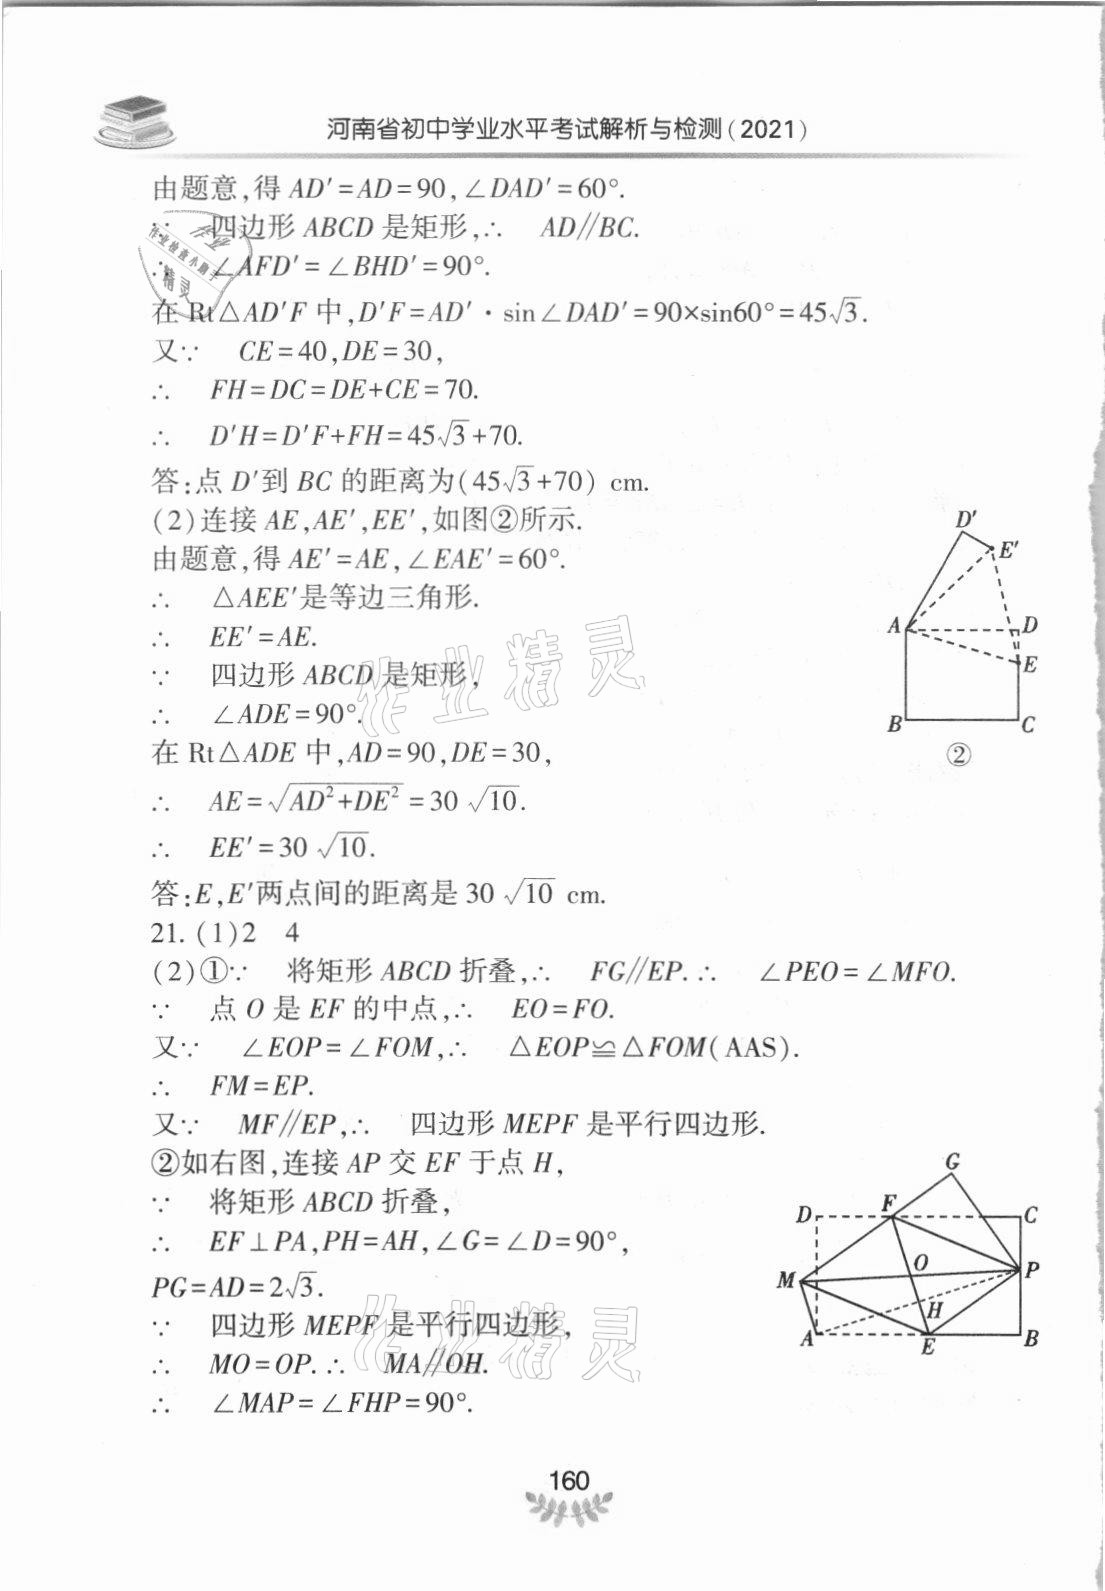 河南省初中学业水平考试解析与检测(2021)
由题意,得 AD′=AD=90,∠DAD′=60°.
∵ 四边形 ABCD 是矩形,∴ AD∥BC.
∴ ∠AFD′=∠BHD′=90°.
在 Rt△AD′F 中,D′F=AD′·sin∠DAD′=90×sin60°=45√3.
又∵ CE=40,DE=30,
∴ FH=DC=DE+CE=70.
∴ D′H=D′F+FH=45√3+70.
答:点 D′到 BC 的距离为(45√3+70) cm.
(2)连接 AE,AE′,EE′,如图②所示.
由题意,得 AE′=AE,∠EAE′=60°.
∴ △AEE′是等边三角形.
∴ EE′=AE.
∵ 四边形 ABCD 是矩形,
∴ ∠ADE=90°.
在 Rt△ADE 中,AD=90,DE=30,
∴ AE=√(AD²+DE²)=30√10.
∴ EE′=30√10.
答:E,E′两点间的距离是 30√10 cm.
D′
E′
A
D
E
B
C
②
21.(1)2 4
(2)①∵ 将矩形 ABCD 折叠,∴ FG∥EP.∴ ∠PEO=∠MFO.
∵ 点 O 是 EF 的中点,∴ EO=FO.
又∵ ∠EOP=∠FOM,∴ △EOP≌△FOM(AAS).
∴ FM=EP.
又∵ MF∥EP,∴ 四边形 MEPF 是平行四边形.
②如右图,连接 AP 交 EF 于点 H,
∵ 将矩形 ABCD 折叠,
∴ EF⊥PA,PH=AH,∠G=∠D=90°,
PG=AD=2√3.
∵ 四边形 MEPF 是平行四边形,
∴ MO=OP.∴ MA∥OH.
∴ ∠MAP=∠FHP=90°.
G
D
F
C
O
P
M
H
A
E
B
160
作业
作业检查小助手
精灵
作业精灵
作业精灵